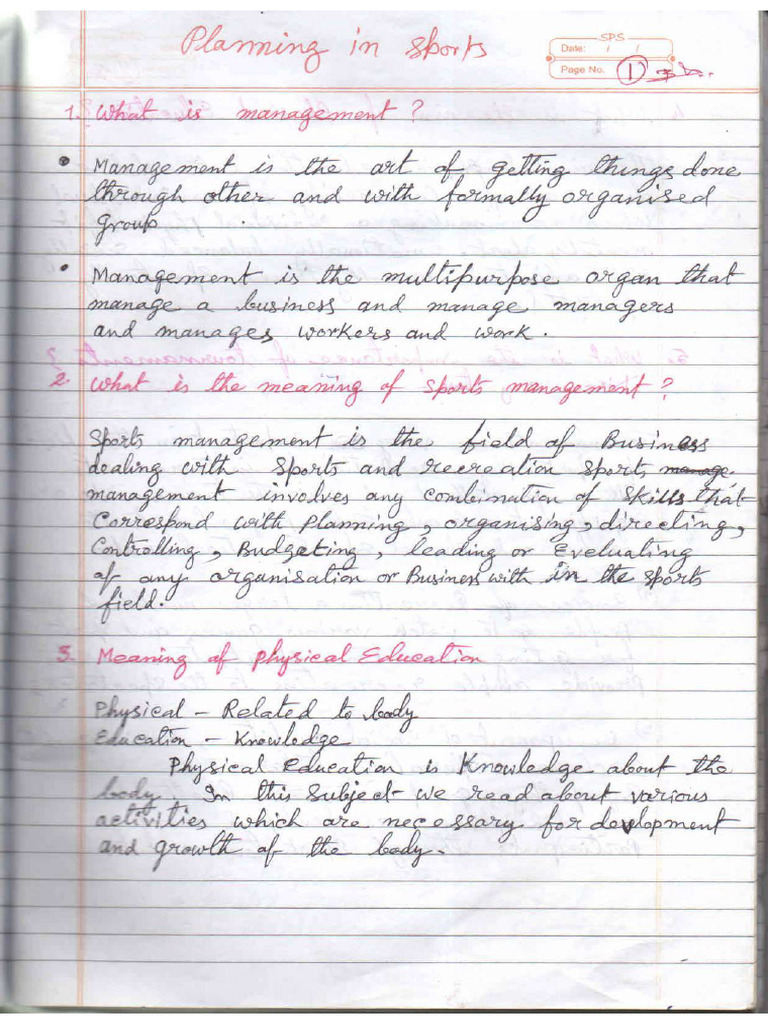 Planning in sports
SPS
Date: / /
Page No. 1
1. What is management ?
• Management is the art of getting things done
through other and with formally organised
group.
• Management is the multipurpose organ that
manage a business and manage managers
and manages workers and work.
2. What is the meaning of sports management ?
Sports management is the field of Business
dealing with sports and recreation sport,
management involves any combination of skills that
correspond with Planning, organising, directing,
Controlling, Budgeting, leading or Evaluating
of any organisation or Business with in the sports
field.
3. Meaning of physical Education
Physical – Related to body
Education – Knowledge
Physical Education is Knowledge about the
body. In this subject we read about various
activities which are necessary for development
and growth of the body.